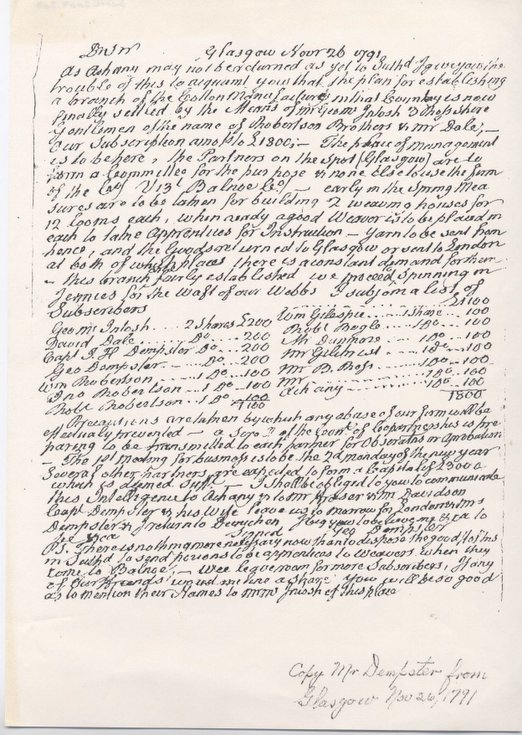 Dr Sir Glasgow Novr 26 1791
As Achany may not be returned as yet to Suthd I give you the
trouble of this to acquaint you that the plan for establishing
a branch of the Cotton Manufacture in that Country is now
finally settled by the Means of Mr Geo McIntosh 3
Gentlemen of the name of Robertson Brothers & Mr Dale, —
Our Subscription amots to £1800, — The place of Management
is to be here, the Partners on the Spot (Glasgow) are to
form a Committee for the purpose & none else to use the firm
of the Balnoe Co, — early in the Spring Mea
sures are to be taken for building 2 weaving houses for
12 Looms each, when ready a good Weaver is to be placed in
each to take Apprentices for Instruction — Yarn to be sent from
hence, and the Goods returned to Glasgow or sent to London
at both of which places there is a constant demand for them
— this branch fairly established we proceed Spinning in
Jennies for the Waft of our Webbs I subjoin a list of
Subscribers £1100
Geo McIntosh ... 2 Shares £200 Wm Gillespie .. 1 Share .. 100
David Dale ... Do .. 200 Robt Bogle ... 1 Do .. 100
Capt Dempster Do .. 200 Mr Dunmore .. 1 Do .. 100
Geo Dempster .. Do .. 200 Mr Gilchrist .. 1 Do .. 100
Wm Robertson .. 1 Do .. 100 Mr B. Ross .. 1 Do .. 100
Jno Robertson .. 1 Do .. 100 Mr 1 Do .. 100
Robt Robertson .. 1 Do .. 100 Achany .. 1 Do .. 100
£1100 1800
Precautions are taken by which any abuse of our firm will be
effectually prevented — a of the Contt of Copartnership is pre
paring to be transmitted to each partner for Observatns or Aprobation
— The 1st Meeting for business is to be the 2d Monday of the new year
Several other Partners are expected to form a Capital of £3000
which is deemed Sufft — I shall be obliged to you to communicate
this Intelligence to Achany & to Mr Fraser & Mr Davidson
Capt Dempster & his Wife leave us tomorrow for London & Mrs
Dempster & I return to Dunychen I beg you to believe me to
be Signed Geo Dempster
P.S. There is nothing more necessary now than to dispose the good folks
in Suthd to send persons to be apprentices to Weavers when they
come to Balnoe, — Wee leave room for more Subscribers, if any
of our friends incline a Share you will be so good
as to mention their Names to Mr McIntosh of this place
Copy Mr Dempster from
Glasgow Nov 26, 1791